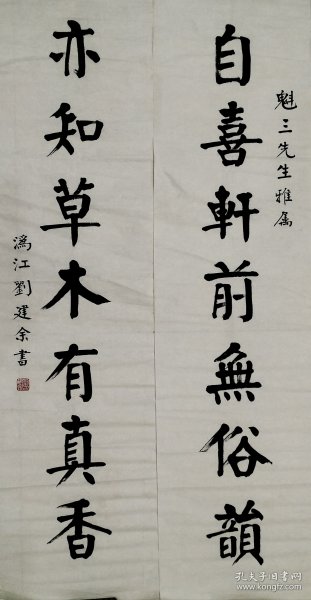 魁三先生雅属
自喜軒前無俗韻
亦知草木有真香
潙江劉建余書
孔夫子旧书网